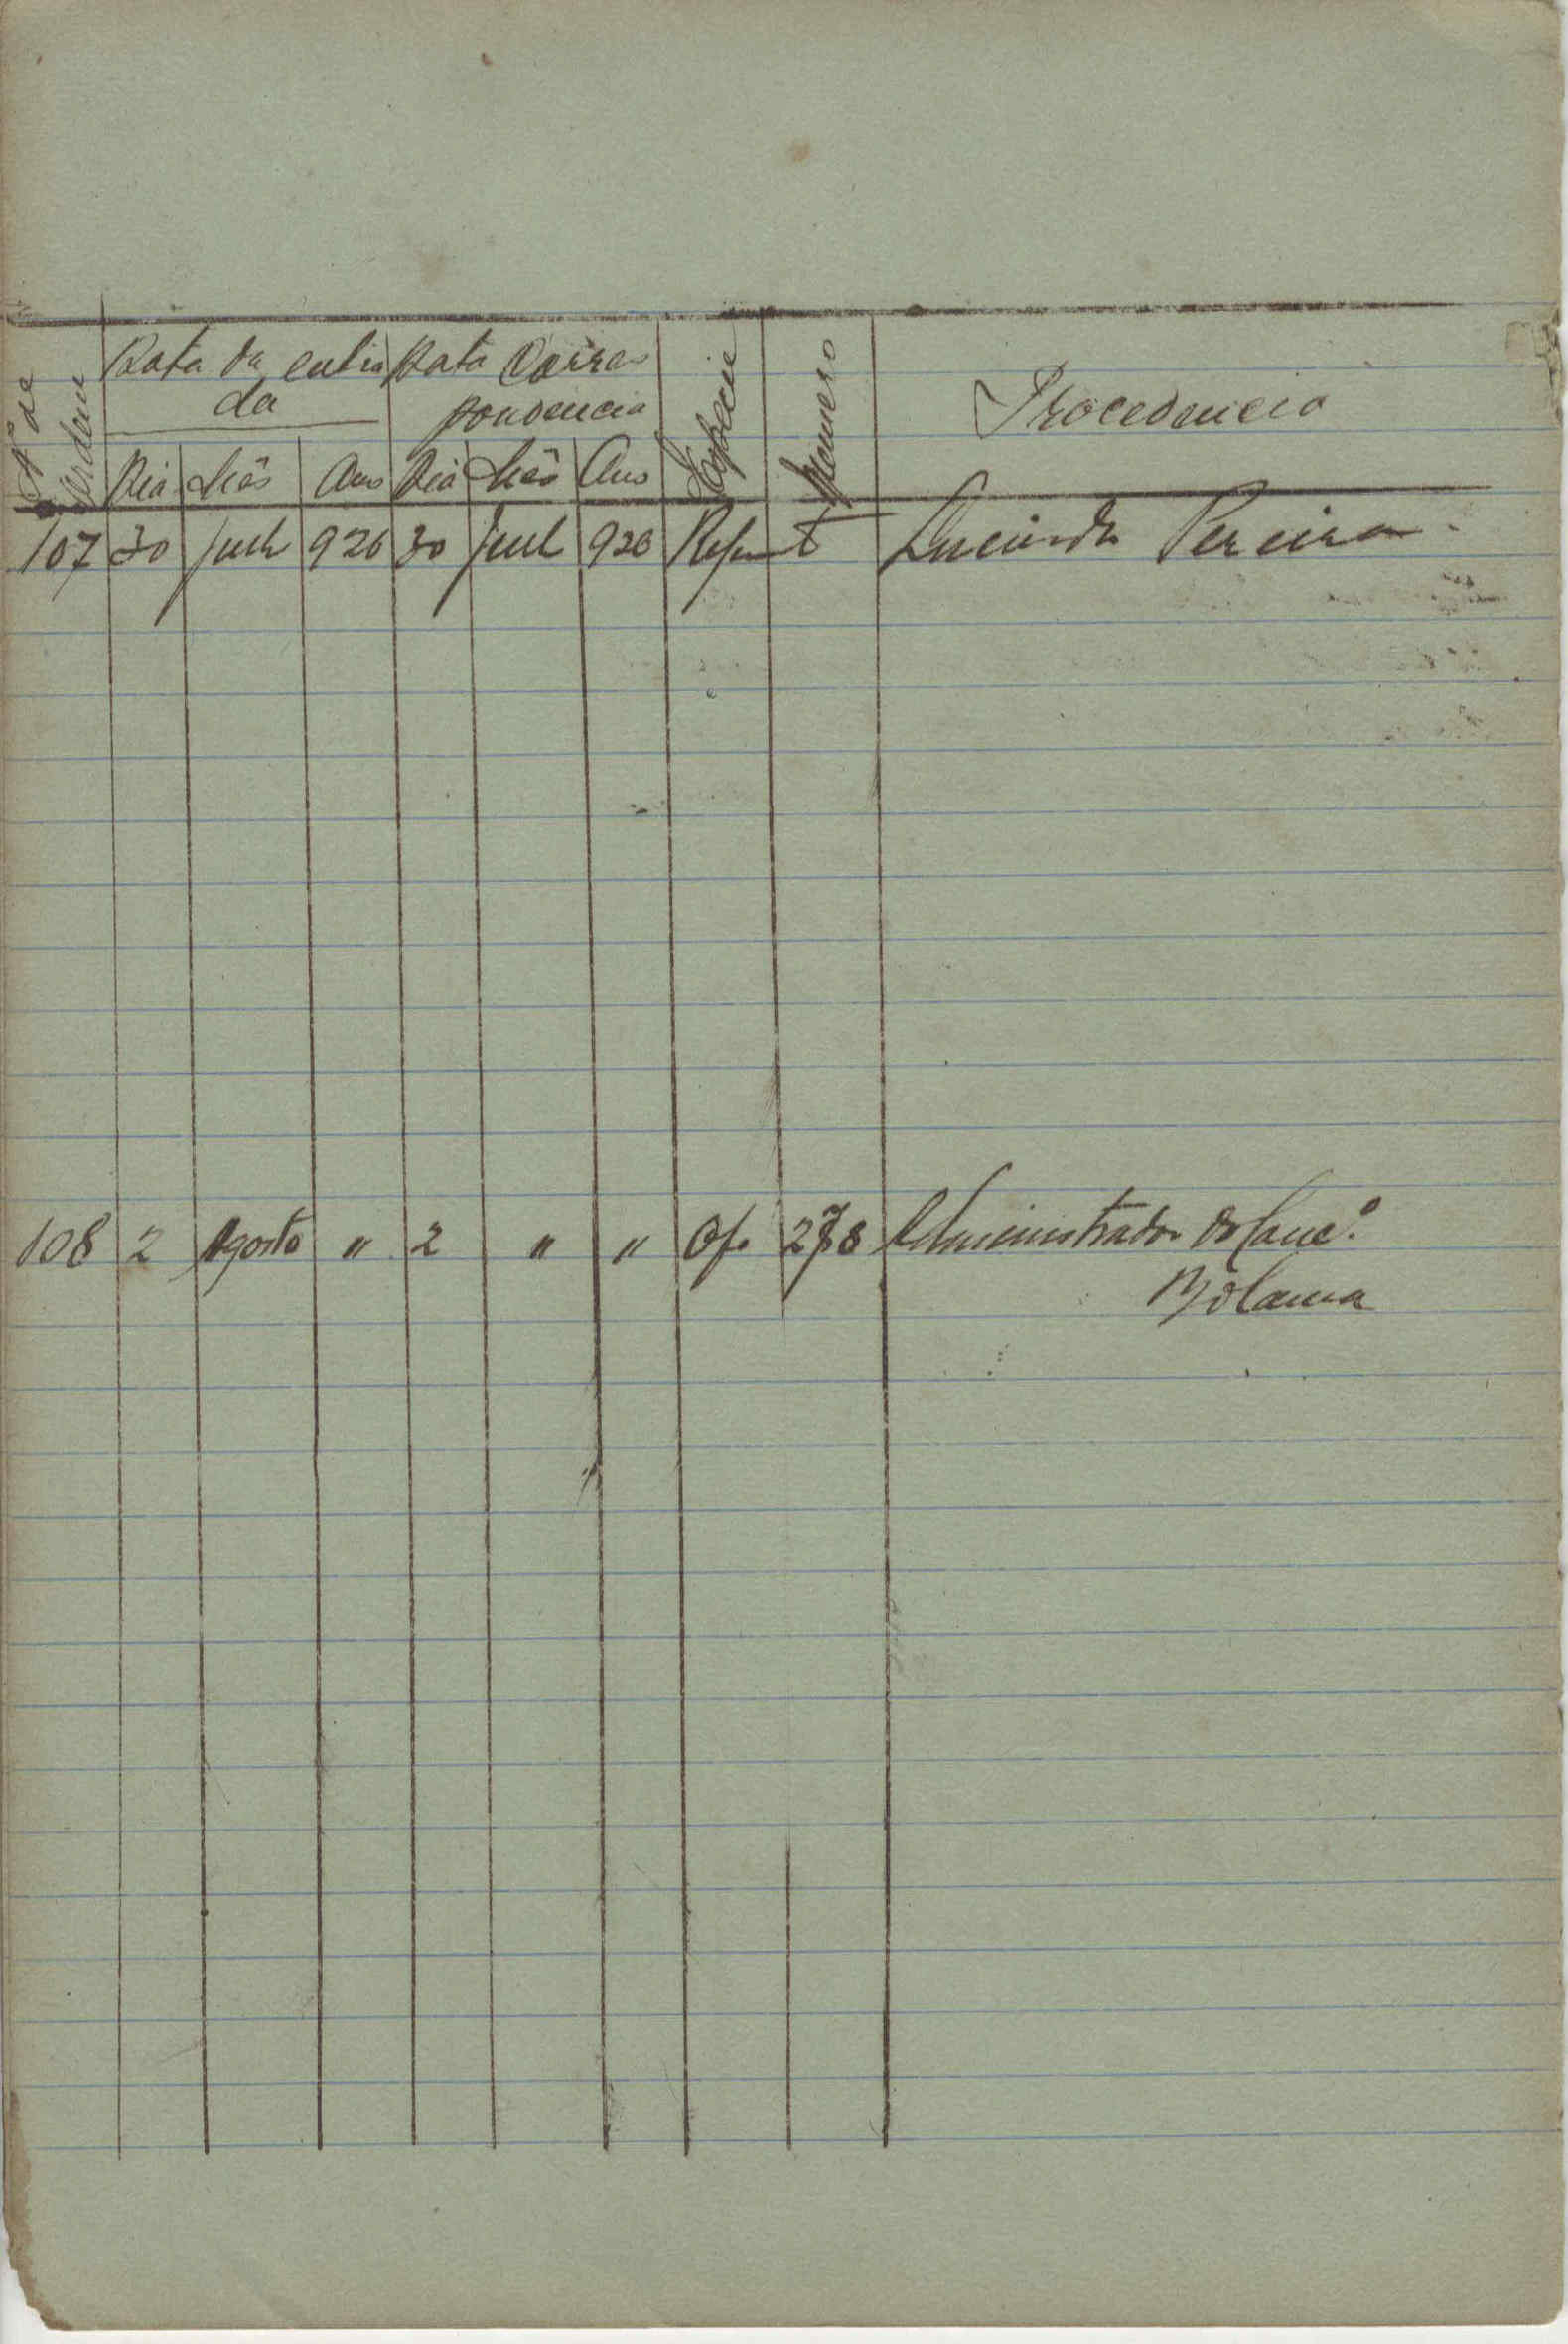 Nº de ordem
Data da entra Data Corres
da pondencia
Especie
Numero
Procedencia
Dia Mês Ano Dia Mês Ano
107 30 Julh 926 30 Julh 926 Lucinda Pereira
108 2 Agosto " 2 " " Of. 278 Administrador do Conc.º
Bolama